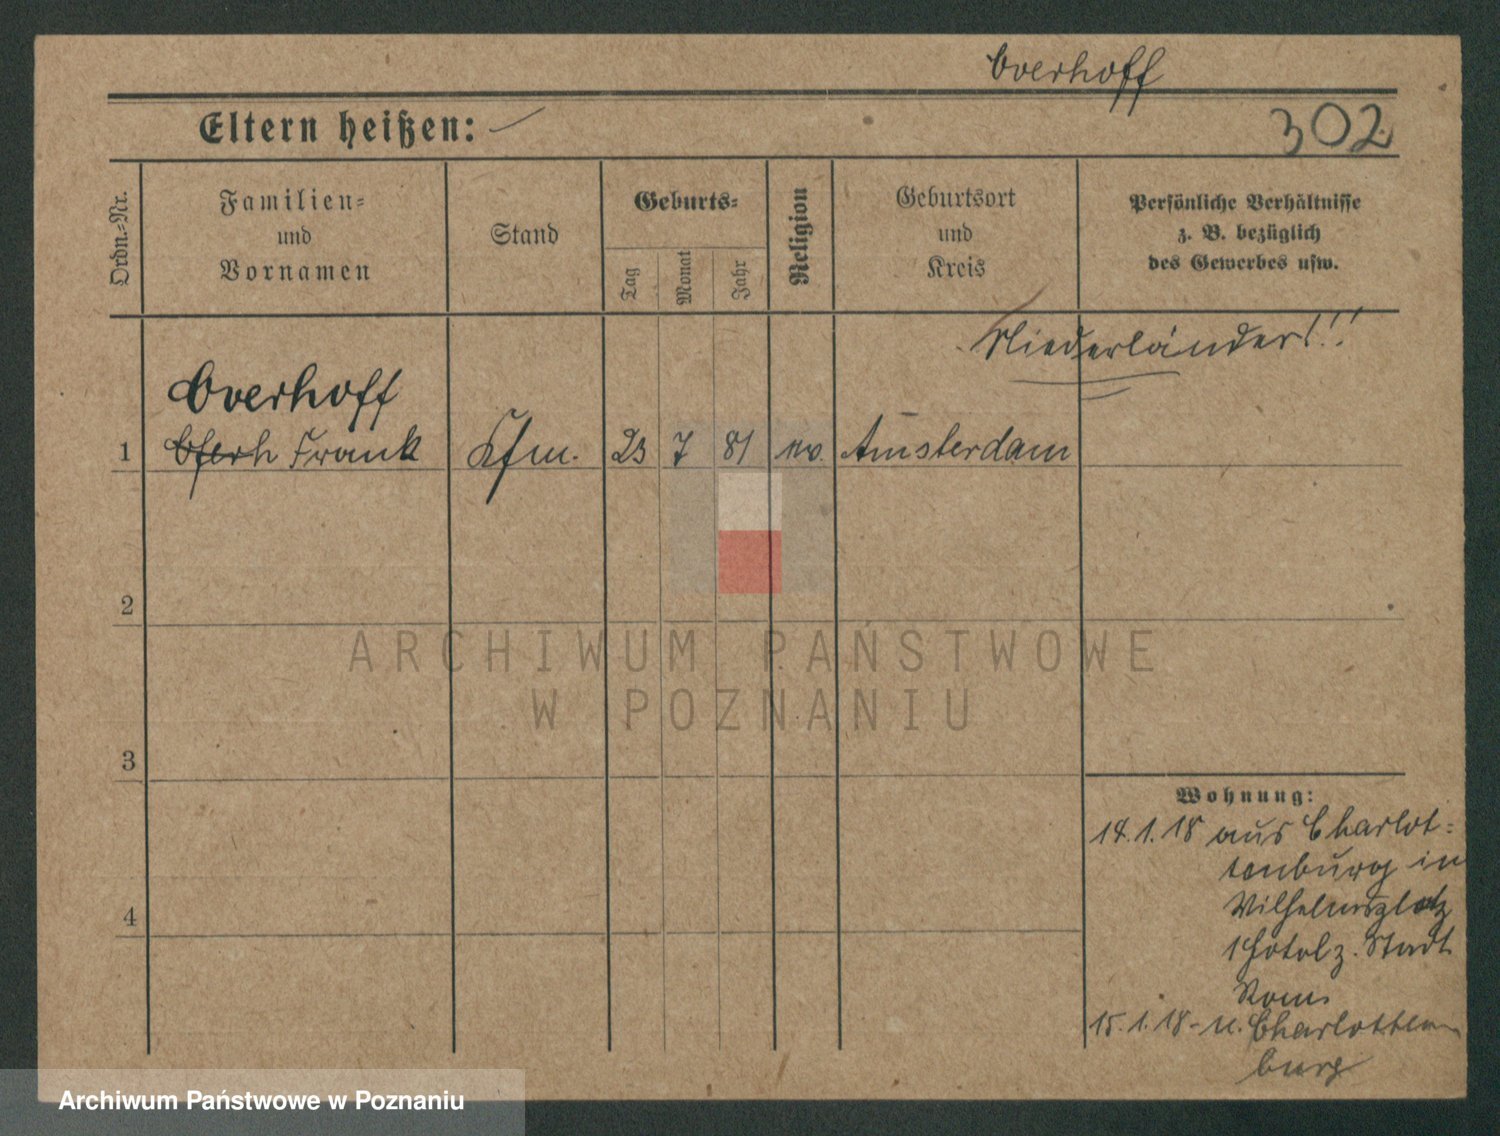 Overhoff
302
Eltern heißen: —
Ordn.-Nr.
Familien-
und
Vornamen
Stand
Geburts-
Tag
Monat
Jahr
Religion
Geburtsort
und
Kreis
Persönliche Verhältnisse
z. B. bezüglich
des Gewerbes usw.
Niederländer!!!
Overhoff
1 Frank Kfm. 23 7 81 ev. Amsterdam
2
3
4
Wohnung:
14.1.18 aus Charlot=
tenburg in
Wilhelmsplatz
1 Hotel z. Stadt
Rom.
15.1.18 - n. Charlotten
burg
ARCHIWUM PAŃSTWOWE
W POZNANIU
Archiwum Państwowe w Poznaniu